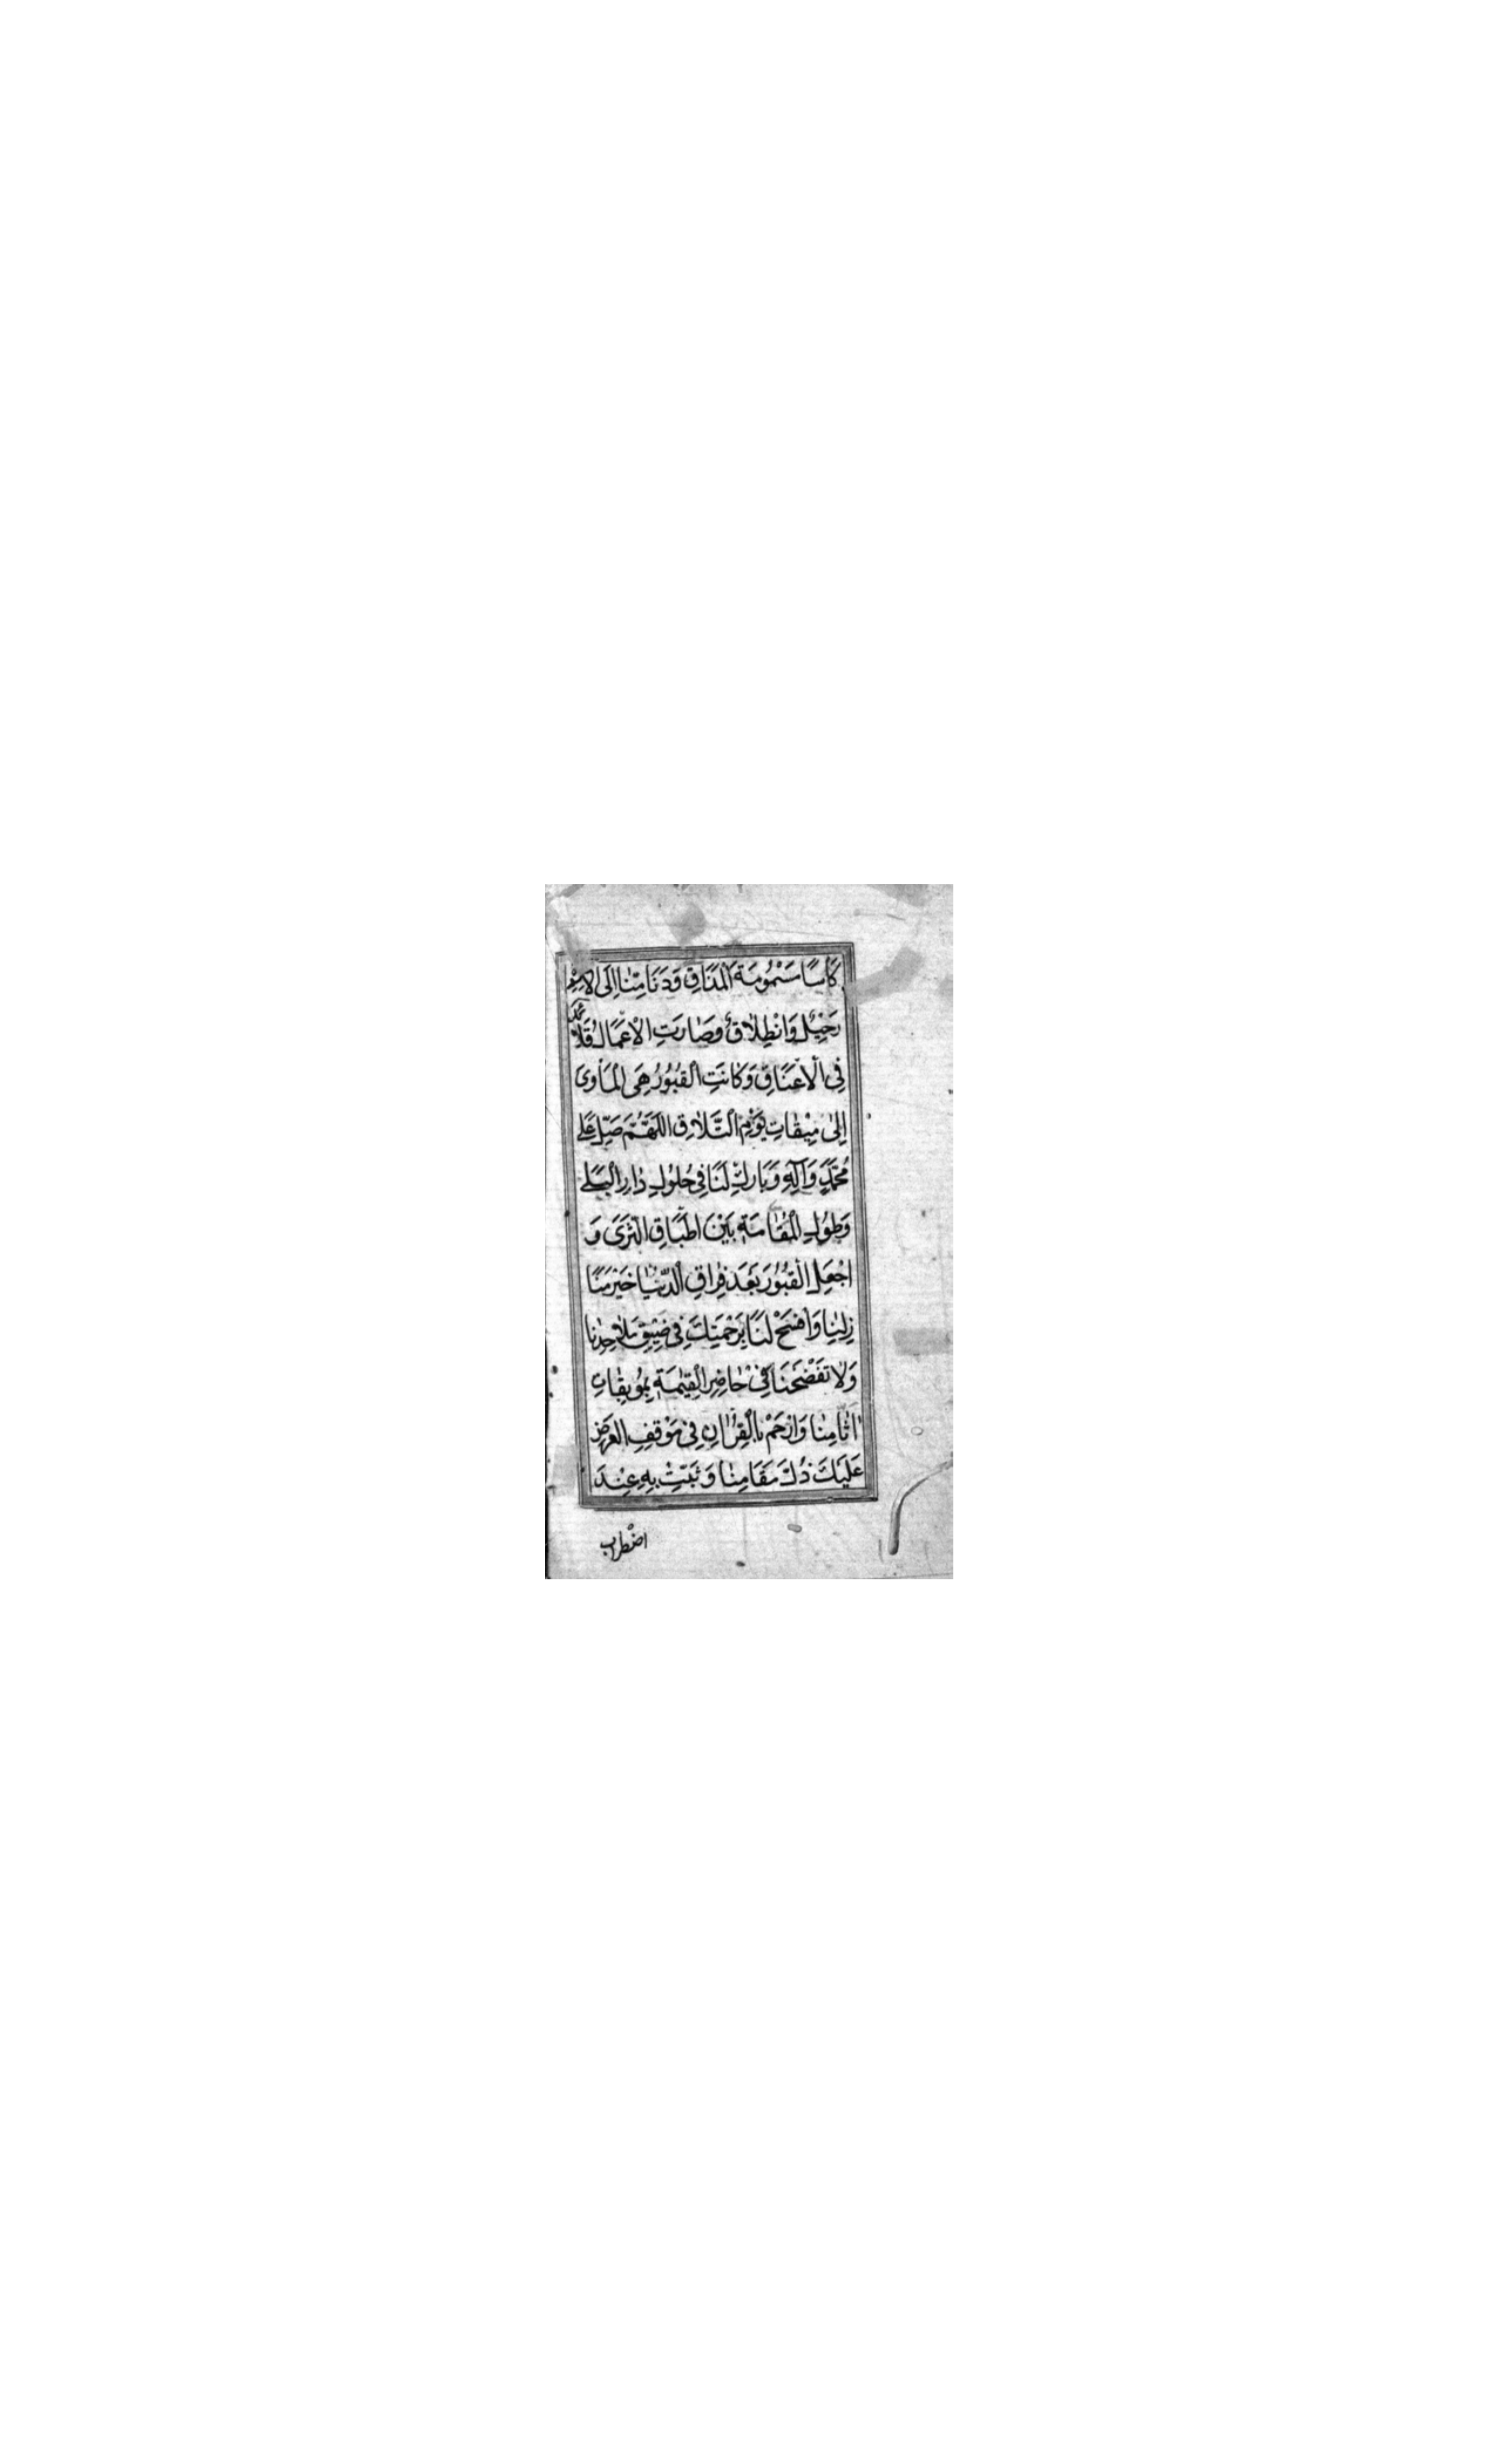 كَأْسًا مَسْمُومَةَ الْمَذَاقِ وَدَنَا مِنَّا إِلَى الْآخِرَةِ
رَحِيلٌ وَانْطِلَاقٌ وَصَارَتِ الْأَعْمَالُ قَلَائِدَ
فِي الْأَعْنَاقِ وَكَانَتِ الْقُبُورُ هِيَ الْمَأْوَى
إِلَى مِيقَاتِ يَوْمِ التَّلَاقِ اللَّهُمَّ صَلِّ عَلَى
مُحَمَّدٍ وَآلِهِ وَبَارِكْ لَنَا فِي حُلُولِ دَارِ الْبِلَى
وَطُولِ الْمُقَامَةِ بَيْنَ أَطْبَاقِ الثَّرَى وَ
اجْعَلِ الْقُبُورَ بَعْدَ فِرَاقِ الدُّنْيَا خَيْرَ مَنَا
زِلِنَا وَافْسَحْ لَنَا بِرَحْمَتِكَ فِي ضِيقِ مَلَاحِدِنَا
وَلَا تَفْضَحْنَا فِي حَاضِرِ الْقِيٰمَةِ بِمُوبِقَاتِ
اٰثَامِنَا وَارْحَمْ بِالْقُرْاٰنِ فِي مَوْقِفِ الْعَرْضِ
عَلَيْكَ ذُلَّ مَقَامِنَا وَثَبِّتْ بِهِ عِنْدَ
اضْطِرَابِ